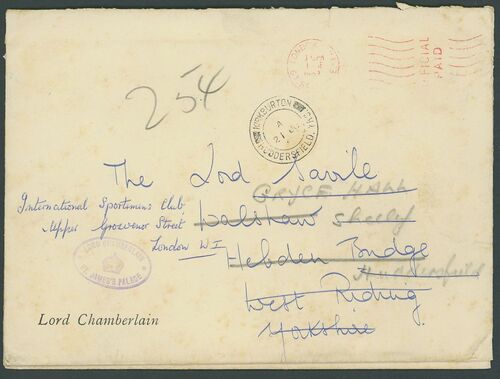 LONDON
OFFICIAL
PAID
254
KIRKBURTON
A
HUDDERSFIELD
The Lord Savile
GRYCE HALL
International Sportsmens Club,
Upper Grosvenor Street
London W I
Shelley
Hebden Bridge
Huddersfield
West Riding
Yorkshire
LORD CHAMBERLAIN
ST. JAMES'S PALACE
Lord Chamberlain